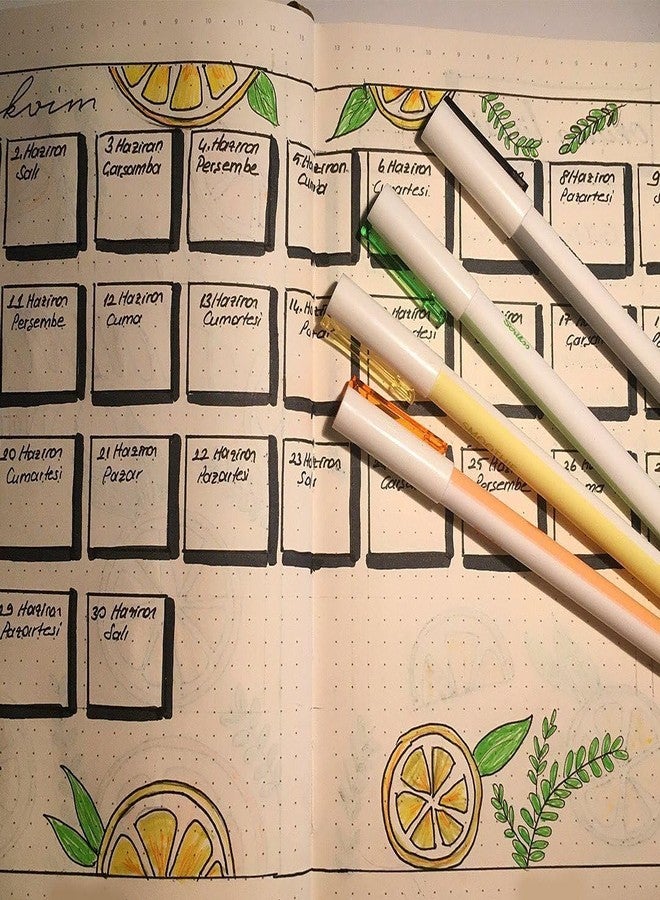 kvim
2 Haziran
Salı
3 Haziran
Çarşamba
4 Haziran
Perşembe
5 Haziran
Cuma
6 Haziran
Cumartesi
8 Haziran
Pazartesi
9
11 Haziran
Perşembe
12 Haziran
Cuma
13 Haziran
Cumartesi
14
Pazar
Haziran
17
Çarşa
20 Haziran
Cumartesi
21 Haziran
Pazar
22 Haziran
Pazartesi
23 Haziran
Salı
Çarşa
25 Haziran
Perşembe
26
29 Haziran
Pazartesi
30 Haziran
Salı